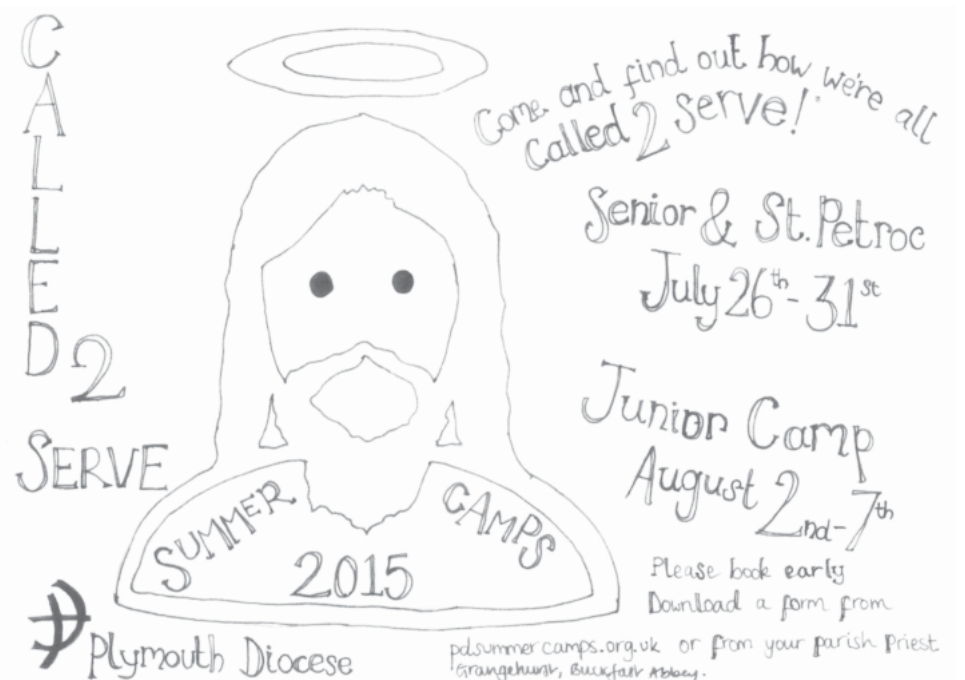 CALLED
2
SERVE
Come and find out how we're all
called 2 serve!
Senior & St. Petroc
July 26th - 31st
Junior Camp
August 2nd - 7th
SUMMER CAMPS
2015
Please book early
Download a form from
pdsummercamps.org.uk or from your parish Priest
Grangehurst, Buckfast Abbey.
Plymouth Diocese